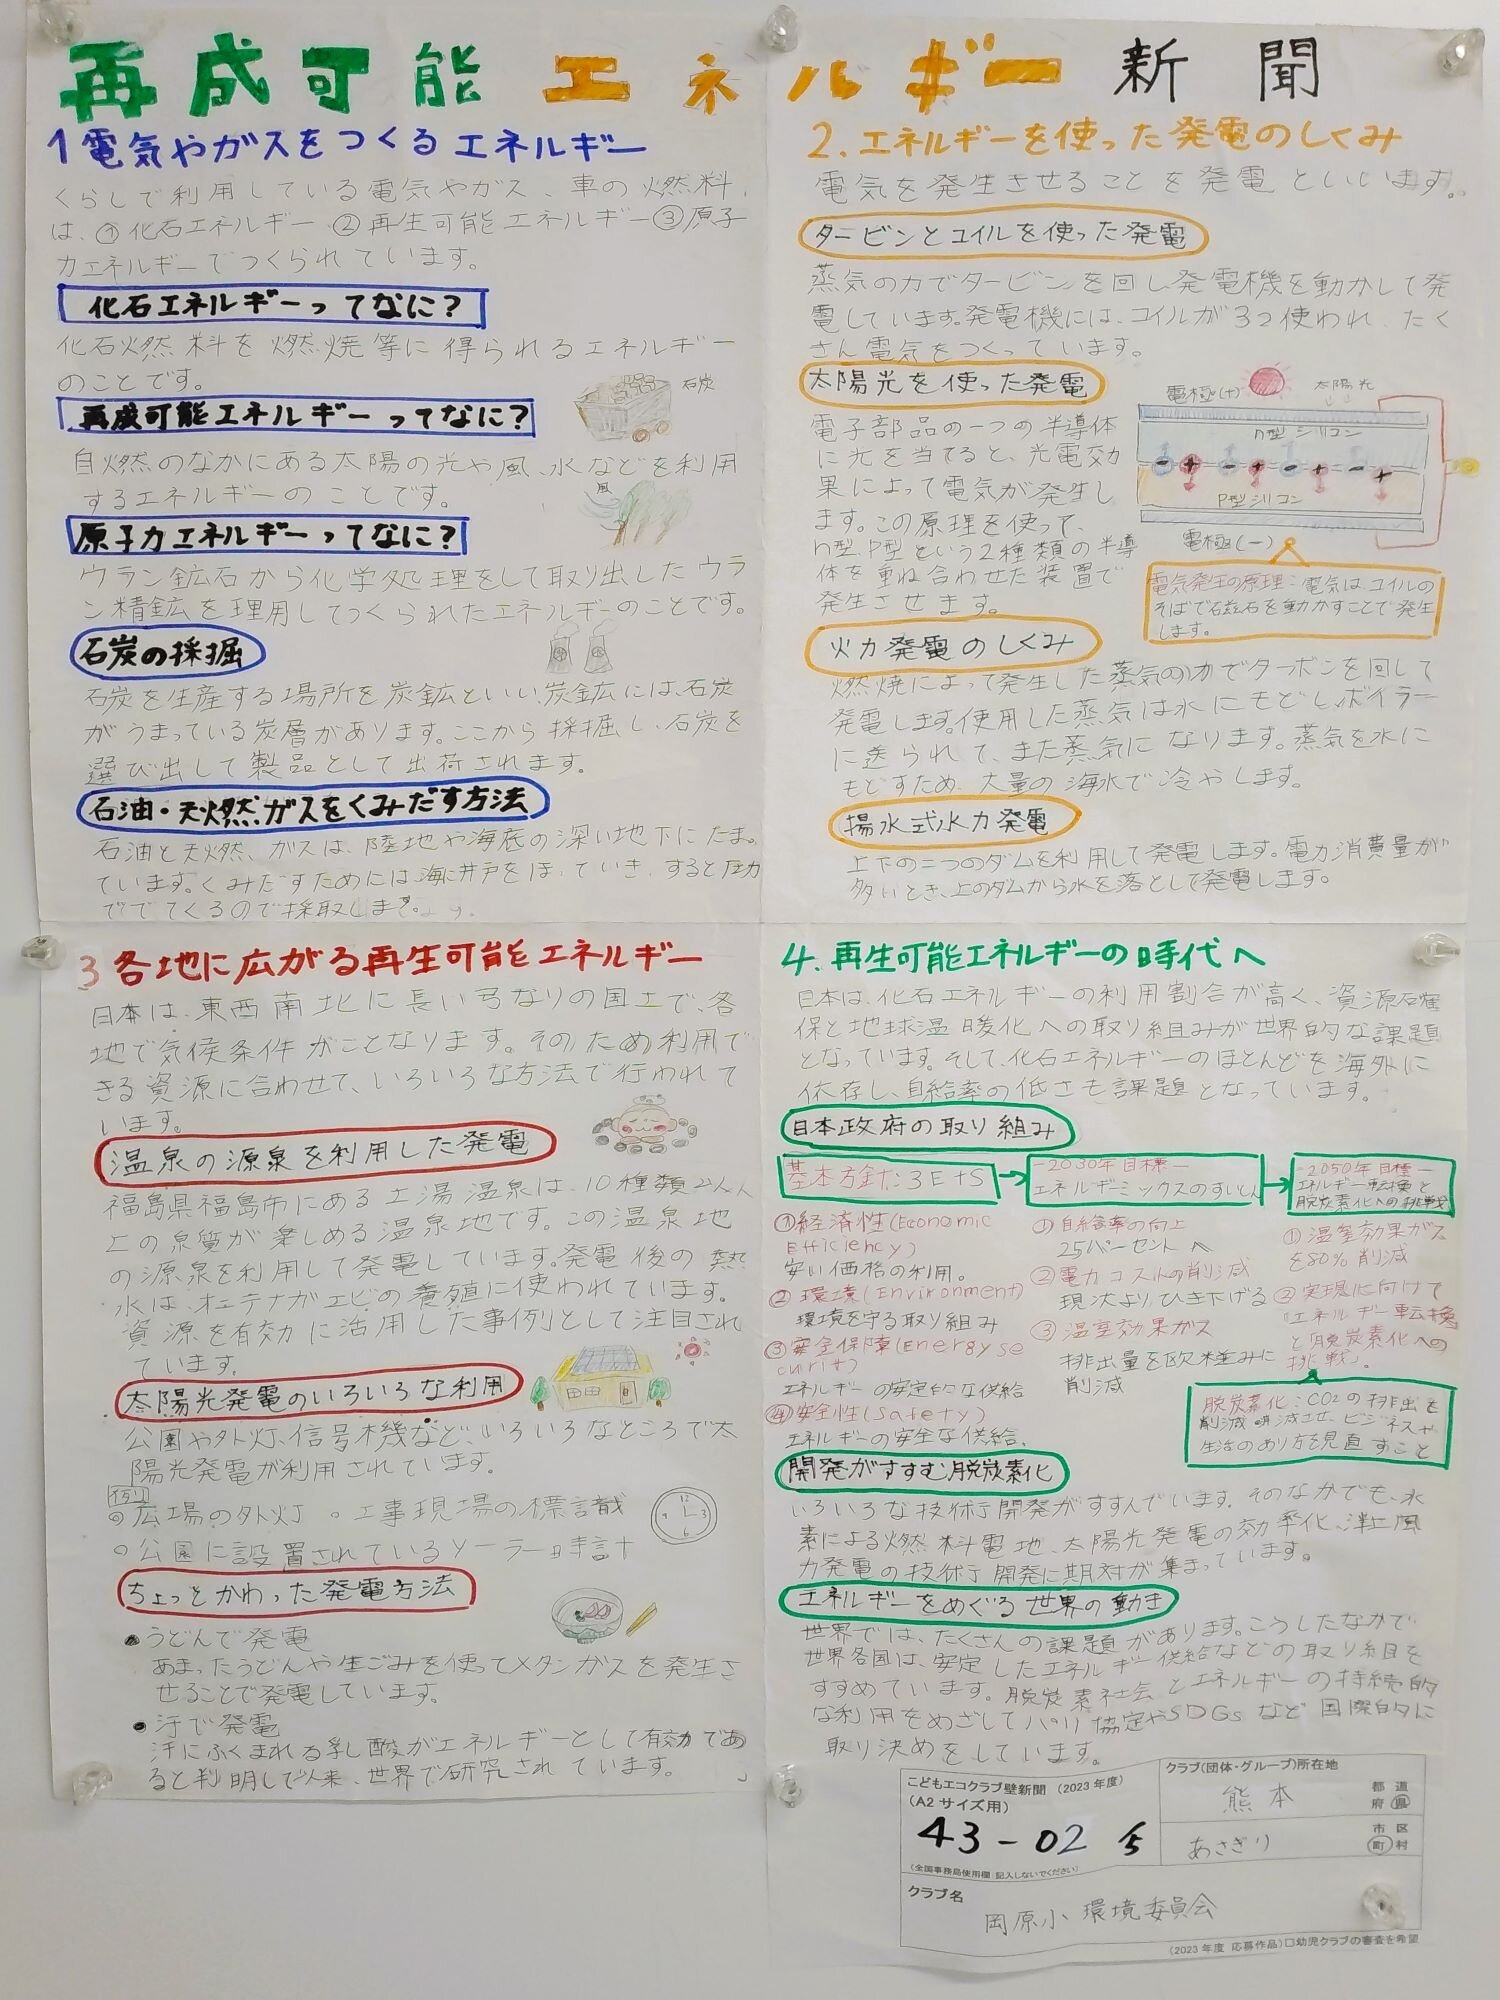 再成可能エネルギー新聞
1 電気やガスをつくるエネルギー
くらしで利用している電気やガス、車の燃料
は、①化石エネルギー、②再生可能エネルギー③原子
力エネルギーでつくられています。
化石エネルギーってなに?
化石燃料を燃焼等に得られるエネルギー
のことです。
石炭
再成可能エネルギーってなに?
自燃のなかにある太陽の光や風、水などを利用
するエネルギーのことです。
風
原子力エネルギーってなに?
ウラン鉱石から化学処理をして取り出したウラ
ン精鉱を理用してつくられたエネルギーのことです。
石炭の採掘
石炭を生産する場所を炭鉱といい、炭鉱には、石炭
がうまっている炭層があります。ここから採掘し、石炭を
選び出して製品として出荷されます。
石油・天燃ガスをくみだす方法
石油と天燃、ガスは、陸地や海底の深い地下にたま。
ています。くみだすためには海に井戸をほっていき、すると圧力
ででてくるので採取します。
2. エネルギーを使った発電のしくみ
電気を発生させることを発電といいます。
タービンとコイルを使った発電
蒸気の力でタービンを回し発電機を動かして発
電しています。発電機には、コイルが32使われ、たく
さん電気をつくっています。
太陽光を使った発電
電子部品の一つの半導体
に光を当てると、光電効
果によって電気が発生し
ます。この原理を使って、
n型、P型という2種類の半導
体を重ね合わせた装置で
発生させます。
電極(+)
太陽光
n型シリコン
P型シリコン
電極(-)
電気発生の原理:電気は、コイルの
そばで磁石を動かすことで発生
します。
火力発電のしくみ
燃焼によって発生した蒸気の力でターボンを回して
発電します。使用した蒸気は水にもどし、ボイラー
に送られて、また蒸気になります。蒸気を水に
もどすため、大量の海水で冷やします。
揚水式水力発電
上下の二つのダムを利用して発電します。電力消費量が
多いとき、上のダムから水を落として発電します。
3 各地に広がる再生可能エネルギー
日本は、東西南北に長い弓なりの国土で、各
地で気候条件がことなります。そのため利用で
きる資源に合わせて、いろいろな方法で行われて
います。
温泉の源泉を利用した発電
福島県福島市にある土湯温泉は、10種類以
上の泉質が楽しめる温泉地です。この温泉地
の源泉を利用して発電しています。発電後の熱
水は、オニテナガエビの養殖に使われています。
資源を有効に活用した事例として注目され
ています。
太陽光発電のいろいろな利用
公園や外灯、信号機など、いろいろなところで太
陽光発電が利用されています。
例
。広場の外灯 。工事現場の標識
。公園に設置されているソーラー時計
12
3
6
9
ちょっとかわった発電方法
●うどんで発電
あまったうどんや生ごみを使ってメタンガスを発生さ
せることで発電しています。
●汗で発電
汗にふくまれる乳酸がエネルギーとして有効であ
ると判明して以来、世界で研究されています。
4. 再生可能エネルギーの時代へ
日本は、化石エネルギーの利用割合が高く、資源確
保と地球温暖化への取り組みが世界的な課題
となっています。そして、化石エネルギーのほとんどを海外に
依存し、自給率の低さも課題となっています。
日本政府の取り組み
基本方針:3E+S
-2030年目標-
エネルギーミックスのすいしん
-2050年目標-
エネルギー転換と
脱炭素化への挑戦
①経済性(Economic
Efficiency)
安い価格の利用。
②環境(Environment)
環境を守る取り組み
③安全保障(Energy se
curit)
エネルギーの安定的な供給
④安全性(Safety)
エネルギーの安全な供給。
①自給率の向上
25パーセントへ
②電力コストの削減
現次よりひき下げる
③温室効果ガス
排出量を欧米並みに
削減
①温室効果ガス
を80%削減
②実現に向けて
「エネルギー転換
と「脱炭素化への
挑戦」。
脱炭素化:CO2の排出を
削減させ、ビジネスや
生活のあり方を見直すこと
開発がすすむ脱炭素化
いろいろな技術開発がすすんでいます。そのなかでも、水
素による燃料電池、太陽光発電の効率化、洋上風
力発電の技術開発に期対が集まっています。
エネルギーをめぐる世界の動き
世界では、たくさんの課題があります。こうしたなかで
世界各国は、安定したエネルギー供給などの取り組を
すすめています。脱炭素社会とエネルギーの持続的
な利用をめざしてパリ協定やSDGsなど国際的に
取り決めをしています。
こどもエコクラブ壁新聞 (2023年度)
(A2サイズ用)
43-02 5
(全国事務局使用欄:記入しないでください)
クラブ(団体・グループ)所在地
熊本
都 道
府 県
あさぎり
市 区
町 村
クラブ名
岡原小 環境委員会
(2023年度 応募作品)□幼児クラブの審査を希望